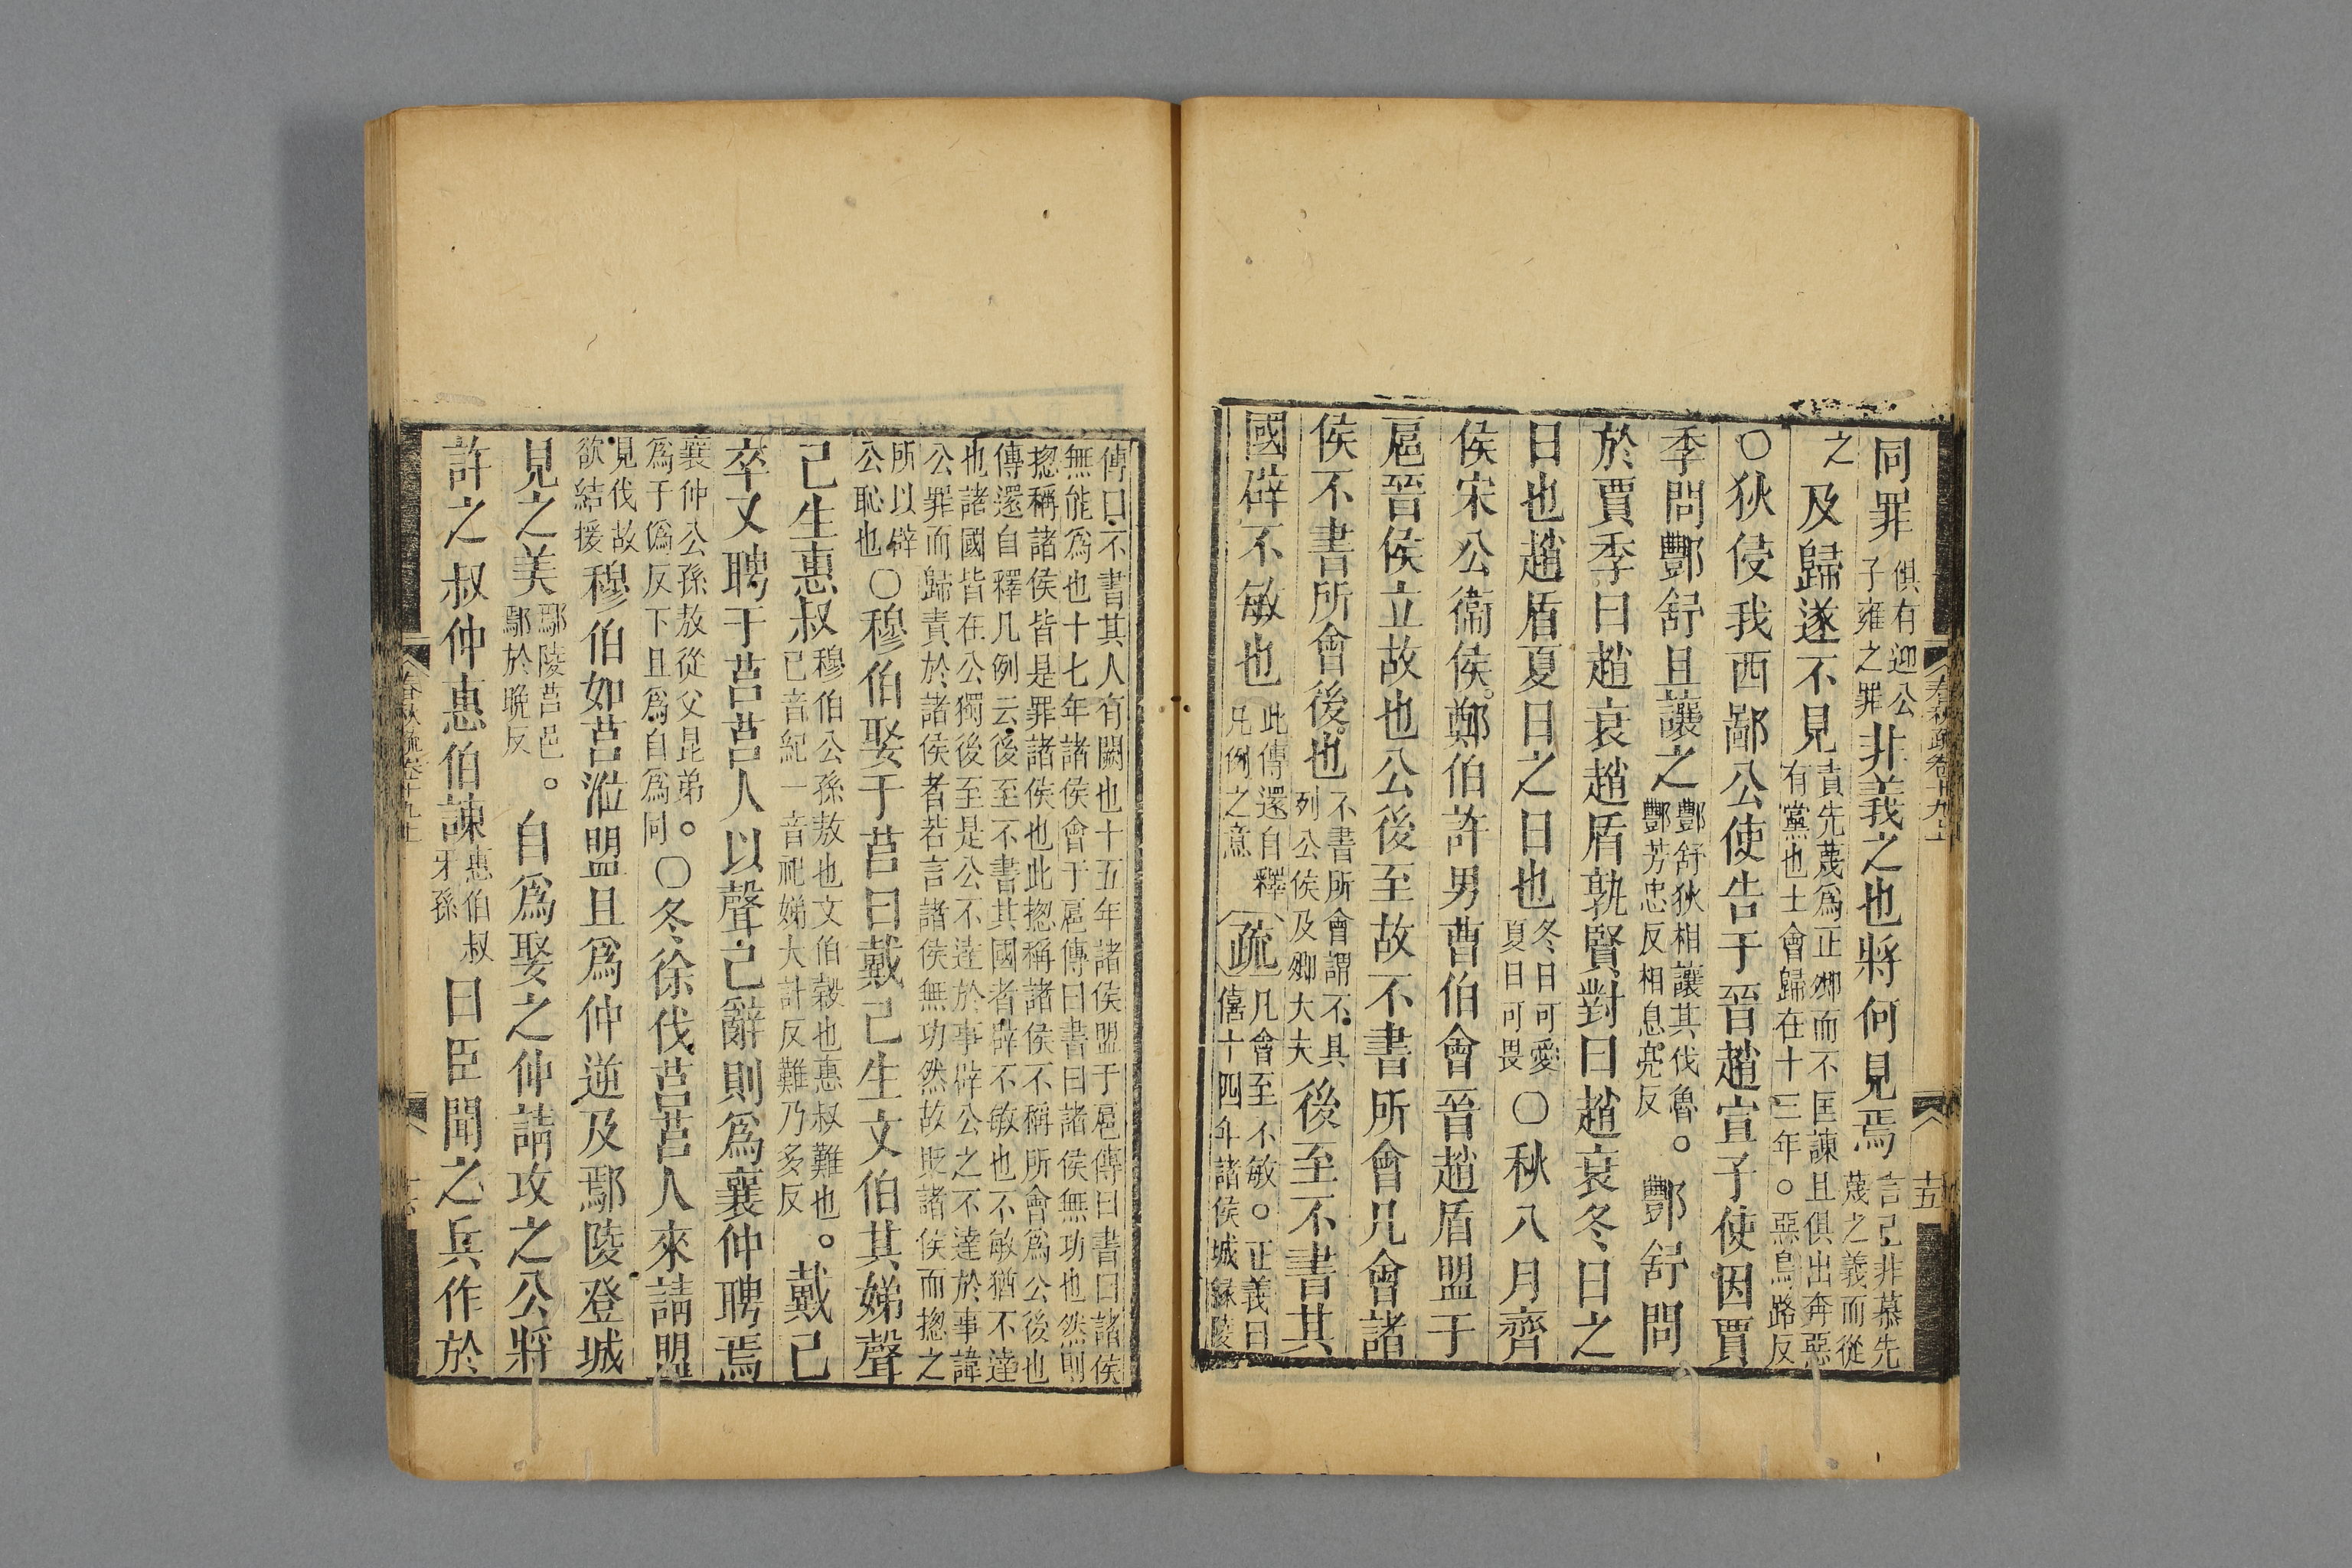 同罪俱有迎公子雍之罪非義之也將何見焉言己非慕先蔑之義而從
之及歸遂不見責先蔑爲正卿而不匡諫且俱出奔惡有黨也士會歸在十三年○惡烏路反
○狄侵我西鄙公使告于晉趙宣子使因賈
季問酆舒且讓之酆舒狄相讓其伐魯○酆芳忠反相息亮反酆舒問
於賈季曰趙衰趙盾孰賢對曰趙衰冬日之
日也趙盾夏日之日也冬日可愛夏日可畏○秋八月齊
侯宋公衞侯鄭伯許男曹伯會晉趙盾盟于
扈晉侯立故也公後至故不書所會凡會諸
侯不書所會後也不書所會謂不具列公侯及卿大夫後至不書其
國辟不敏也此傳還自釋凡例之意疏凡會至不敏○正義曰僖十四年諸侯城緣陵
春秋疏卷十九上
十五
傳曰不書其人有闕也十五年諸侯盟于扈傳曰書曰諸侯
無能爲也十七年諸侯會于扈傳曰書曰諸侯無功也然則
揔稱諸侯皆是罪諸侯也此揔稱諸侯不稱所會爲公後也
傳還自釋凡例云後至不書其國者辟不敏也不敏猶不達
也諸國皆在公獨後至是公不達於事辟公之不達於事諱
公罪而歸責於諸侯者若言諸侯無功然故貶諸侯而揔之
所以辟公恥也○穆伯娶于莒曰戴己生文伯其娣聲
己生惠叔穆伯公孫敖也文伯穀也惠叔難也○己音紀一音祀娣大計反難乃多反戴己
卒又聘于莒莒人以聲己辭則爲襄仲聘焉
襄仲公孫敖從父昆弟○爲于僞反下且爲自爲同○冬徐伐莒莒人來請盟
見伐故欲結援穆伯如莒涖盟且爲仲逆及鄢陵登城
見之美鄢陵莒邑○鄢於晚反自爲娶之仲請攻之公將
許之叔仲惠伯諫惠伯叔牙孫曰臣聞之兵作於
春秋疏卷十九上